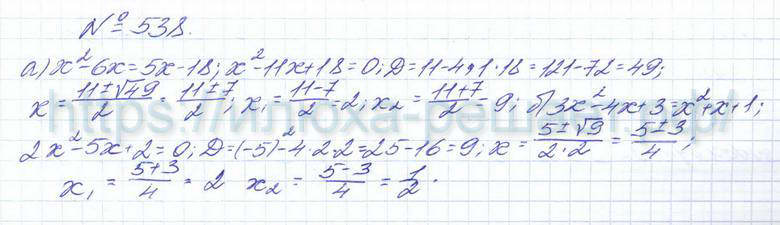 № 538.
а) x²-6x=5x-18; x²-11x+18=0; D=11-4·1·18=121-72=49;
x = (11±√49)/2 = (11±7)/2; x₁ = (11-7)/2 = 2; x₂ = (11+7)/2 = 9; б) 3x²-4x+3=x²+x+1;
2x²-5x+2=0; D=(-5)²-4·2·2=25-16=9; x = (5±√9)/(2·2) = (5±3)/4;
x₁ = (5+3)/4 = 2 x₂ = (5-3)/4 = 1/2.